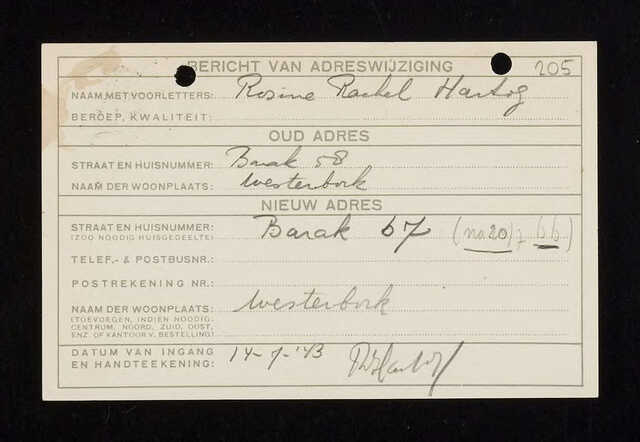 BERICHT VAN ADRESWIJZIGING 205
NAAM MET VOORLETTERS: Rosine Rachel Hartog
BEROEP, KWALITEIT:
OUD ADRES
STRAAT EN HUISNUMMER: Barak 58
NAAM DER WOONPLAATS: Westerbork
NIEUW ADRES
STRAAT EN HUISNUMMER: Barak 67 (na 20/7 66)
(ZOO NOODIG HUISGEDEELTE)
TELEF.- & POSTBUSNR.:
POSTREKENING NR.:
NAAM DER WOONPLAATS: Westerbork
(TOEVOEGEN, INDIEN NOODIG:
CENTRUM, NOORD, ZUID, OOST,
ENZ. OF KANTOOR V. BESTELLING)
DATUM VAN INGANG 14-7-'43
EN HANDTEEKENING: RHartog